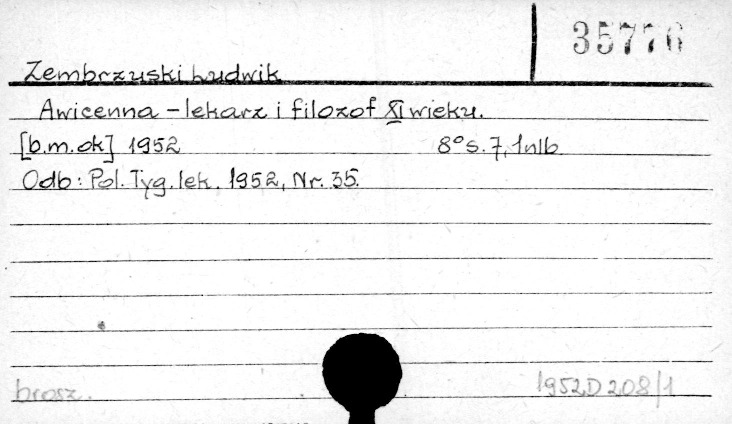 35776
Zembrzuski Ludwik
Awicenna - lekarz i filozof XI wieku.
[b.m.ok] 1952 8° s. 7, 1nlb
Odb: Pol. Tyg. lek. 1952, Nr. 35.
brosz. 1952 D 208/1